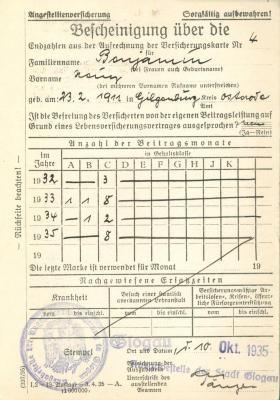 Angestelltenversicherung Sorgfältig aufbewahren!
Bescheinigung über die
Endzahlen aus der Aufrechnung der Versicherungskarte Nr 4
für
Familienname Benjamin
(bei Frauen auch Geburtsname)
Vorname
(bei mehreren Vornamen Rufname unterstreichen)
geb. am 23.2.1911 in Gilgenburg Kreis Osterode
Amt
Ist die Befreiung des Versicherten von der eigenen Beitragsleistung auf
Grund eines Lebensversicherungsvertrages ausgesprochen? nein
(Ja—Nein)
Anzahl der Beitragsmonate
im Jahre
in Gehaltsklasse
A B C D E F G H J K
1932 — — 3
1933 1 1 8
1934 — 1 2
1935 — — 8
19 19
Die letzte Marke ist verwendet für Monat
Nachgewiesene Ersatzzeiten
Krankheit
Besuch einer staatlich anerkannten Lehranstalt
Versicherungsmäßige Arbeitslosen-, Krisen-, öffentliche Fürsorgeunterstützung
vom bis einschl. vom bis einschl. vom bis einschl.
— Rückseite beachten! —
Stempel
Glogau
Ort und Datum 10. Okt. 1935
der Stadt Glogau
Unterschrift des ausstellenden Beamten